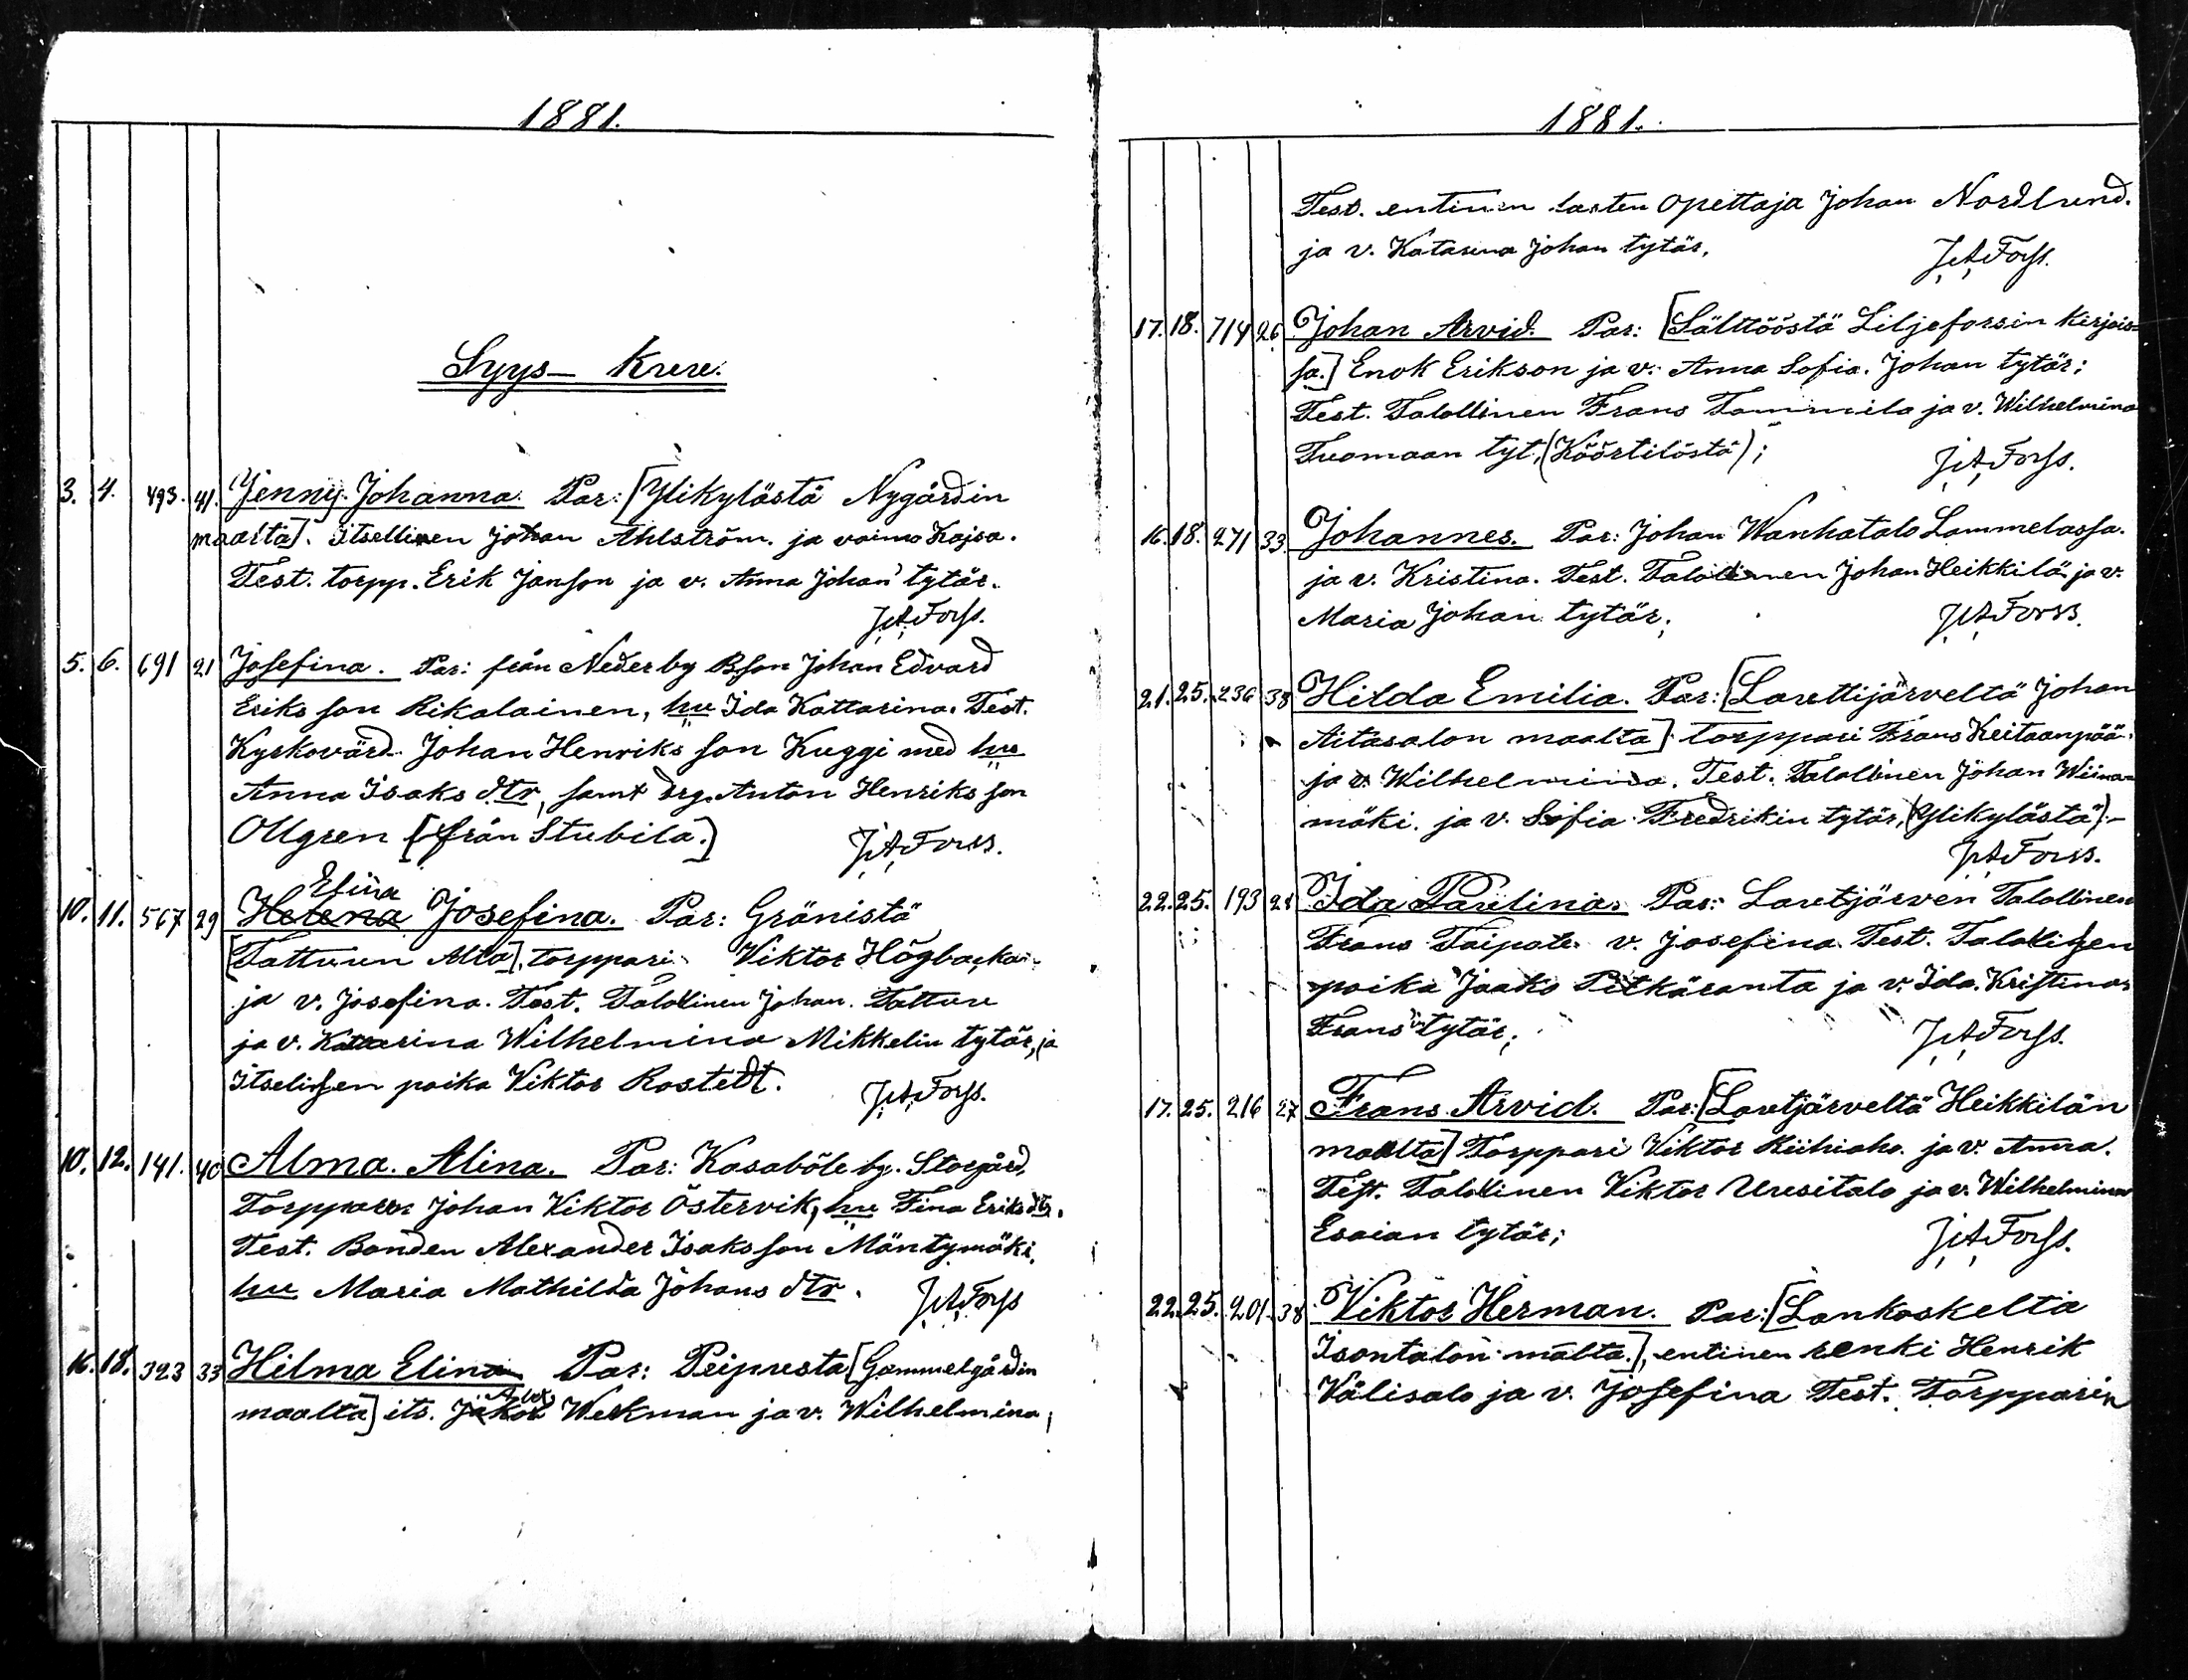 1881.
Syys- Kuu.
3. 4. 493. 41. Jenny Johanna. Par: [Ylikylästä Nygårdin
maalta]. Itsellinen Johan Ahlström. ja vaimo Kajsa.
Test. torpp. Erik Janson ja v. Anna Johan tytär.
J.A. Forss.
5. 6. 691 21 Josefina. Par: från Nederby Bson Johan Edvard
Eriks son Rikalainen, hu Ida Kattarina. Test.
Kyrkovärd. Johan Henriks son Kuggi med hu
Anna Isaks dtr, samt drg. Anton Henriks son
Ollgren [från Stubila.] J.A. Forss.
Elina
10. 11. 567 29 Helena Josefina. Par: Gränistä
[Tattuun Alta], torppari Viktor Högbacka
ja v. Josefina. Test. Talollinen Johan. Tattuu
ja v. Kattarina Wilhelmina Mikkelin tytär, ja
Itselisen poika Viktor Rostedt. J.A. Forss.
10. 12. 141. 40 Alma. Alina. Par: Kasaböle by. Storgård
Torpparen Johan Viktor Östervik, hu Fina Eriks dtr.
Test. Bonden Alexander Isaksson Mäntymäki,
hu Maria Mathilda Johans dtr. J.A. Forss
16. 18. 323 33 Hilma Elina Par: Peipusta [Gammelgårdin
maalta] its. Jakob Wekman ja v. Wilhelmina,
1881.
Test. entinen lasten Opettaja Johan Nordlund.
ja v. Katarina Johan tytär. J.A. Forss.
17. 18. 714 26 Johan Arvid. Par: [Sälttööstä Liljeforsin kirjois-
sa.] Enok Erikson ja v. Anna Sofia. Johan tytär;
Test. Talollinen Frans Tommila ja v. Wilhelmina
Tuomaan tyt, (Köörtilästä); J.A. Forss.
16. 18. 271 33. Johannes. Par: Johan Wanhatalo Lammelassa.
ja v. Kristina. Test. Talollinen Johan Heikkilä ja v.
Maria Johan tytär, J.A. Forss.
21. 25. 236 38 Hilda Emilia. Par: [Lauttijärveltä Johan
Aitasalon maalta] torppari Frans Keitaanpää
ja v. Wilhelmina. Test. Talollinen Johan Wiina-
mäki. ja v. Sofia Fredrikin tytär, (Ylikylästä) -
J.A. Forss.
22. 25. 193 Ida Paulina. Par: Lautjärven Talollinen
Frans Taipale v. Josefina. Test. Talollisen
poika Jaako Pitkäranta ja v. Ida. Kristina
Frans tytär, J.A. Forss.
17. 25. 216 27 Frans Arvid. Par: [Lautjärveltä Heikkilän
maalta] Torppari Viktor Riihiaho. ja v. Anna.
Test. Talollinen Viktor Uusitalo ja v. Wilhelmina
Esaian tytär; J.A. Forss.
22. 25. 201. 38 Viktor Herman. Par: [Lankoskelta
Isontalon maltä.], entinen renki Henrik
Välisalo ja v. Josefina Test. Torpparin